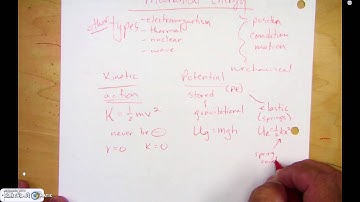 Mechanical Energy
other types - electromagnetism
- thermal
- nuclear
- wave
position
condition
motion
mechanical
Kinetic
action
K = ½mv²
never be ⊖
v=0 K=0
Potential
(PE)
stored
gravitational
Ug = mgh
elastic
(springs)
Ue=½kx²
spring